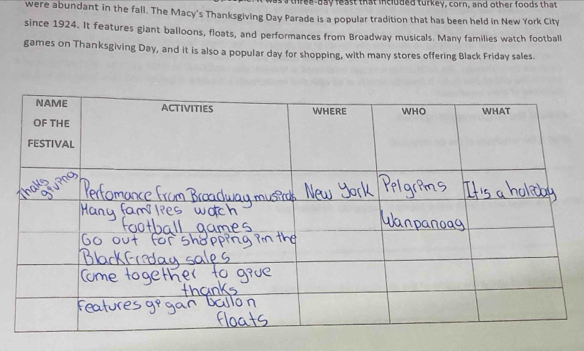 three-day feast that included turkey, corn, and other foods that
were abundant in the fall. The Macy's Thanksgiving Day Parade is a popular tradition that has been held in New York City
since 1924. It features giant balloons, floats, and performances from Broadway musicals. Many families watch football
games on Thanksgiving Day, and it is also a popular day for shopping, with many stores offering Black Friday sales.
NAME OF THE FESTIVAL
ACTIVITIES
WHERE
WHO
WHAT
Thaks giving
Perfomance from Broadway musicals
New York
Pilgrims
It is a holiday
Many families watch
football games
Wanpanoag
Go out for shopping in the
Black Friday sales
Come together to give
thanks
Features gigan ballon
floats